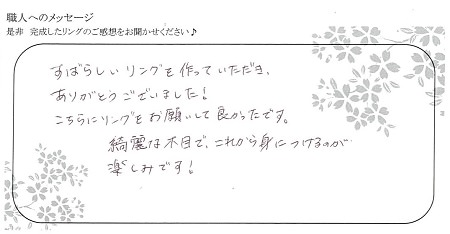 職人へのメッセージ
是非 完成したリングのご感想をお聞かせください♪
すばらしいリングを作っていただき、
ありがとうございました!
こちらにリングをお願いして良かったです。
綺麗な木目で、これから身につけるのが
楽しみです!